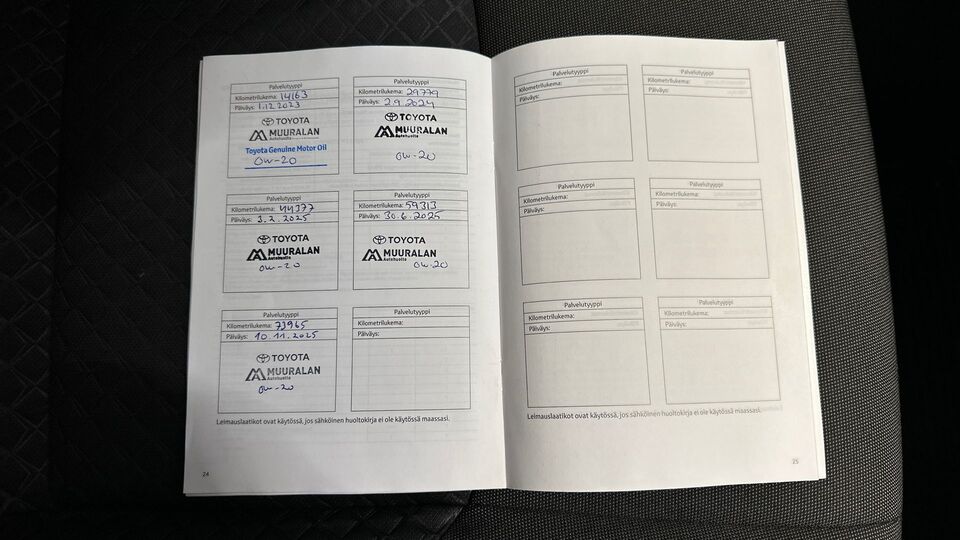 Palvelutyyppi
Kilometrilukema: 14163
Päiväys: 1.12.2023
TOYOTA
MUURALAN
Autohuolto
Toyota Genuine Motor Oil
0W-20
Palvelutyyppi
Kilometrilukema: 29779
Päiväys: 2.9.2024
TOYOTA
MUURALAN
Autohuolto
0W-20
Palvelutyyppi
Kilometrilukema: 44377
Päiväys: 3.2.2025
TOYOTA
MUURALAN
Autohuolto
0W-20
Palvelutyyppi
Kilometrilukema: 59313
Päiväys: 30.6.2025
TOYOTA
MUURALAN
Autohuolto
0W-20
Palvelutyyppi
Kilometrilukema: 73965
Päiväys: 10.11.2025
TOYOTA
MUURALAN
Autohuolto
0W-20
Palvelutyyppi
Kilometrilukema:
Päiväys:
Leimauslaatikot ovat käytössä, jos sähköinen huoltokirja ei ole käytössä maassasi.
24
Palvelutyyppi
Kilometrilukema:
Päiväys:
Palvelutyyppi
Kilometrilukema:
Päiväys:
Palvelutyyppi
Kilometrilukema:
Päiväys:
Palvelutyyppi
Kilometrilukema:
Päiväys:
Palvelutyyppi
Kilometrilukema:
Päiväys:
Palvelutyyppi
Kilometrilukema:
Päiväys:
Leimauslaatikot ovat käytössä, jos sähköinen huoltokirja ei ole käytössä maassasi.
25